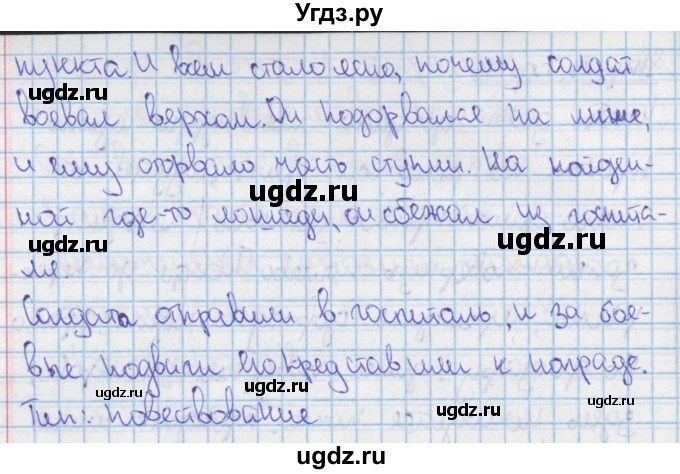 Угдз.ру
пункта. И всем стало ясно, почему солдат
ugdz.ru ugdz.ru
воевал верхом. Он подорвался на мине,
и ему оторвало часть ступни. На найден-
ugdz.ru
ной где-то лошади, он сбежал из госпита-
ugdz.ru ugdz.ru
ля.
Солдата отправили в госпиталь, и за бое-
вые подвиги его представили к награде.
ugdz.ru ugdz.ru ugdz.ru
Тип: повествование
ugdz.ru ugdz.ru
Угдз.ру